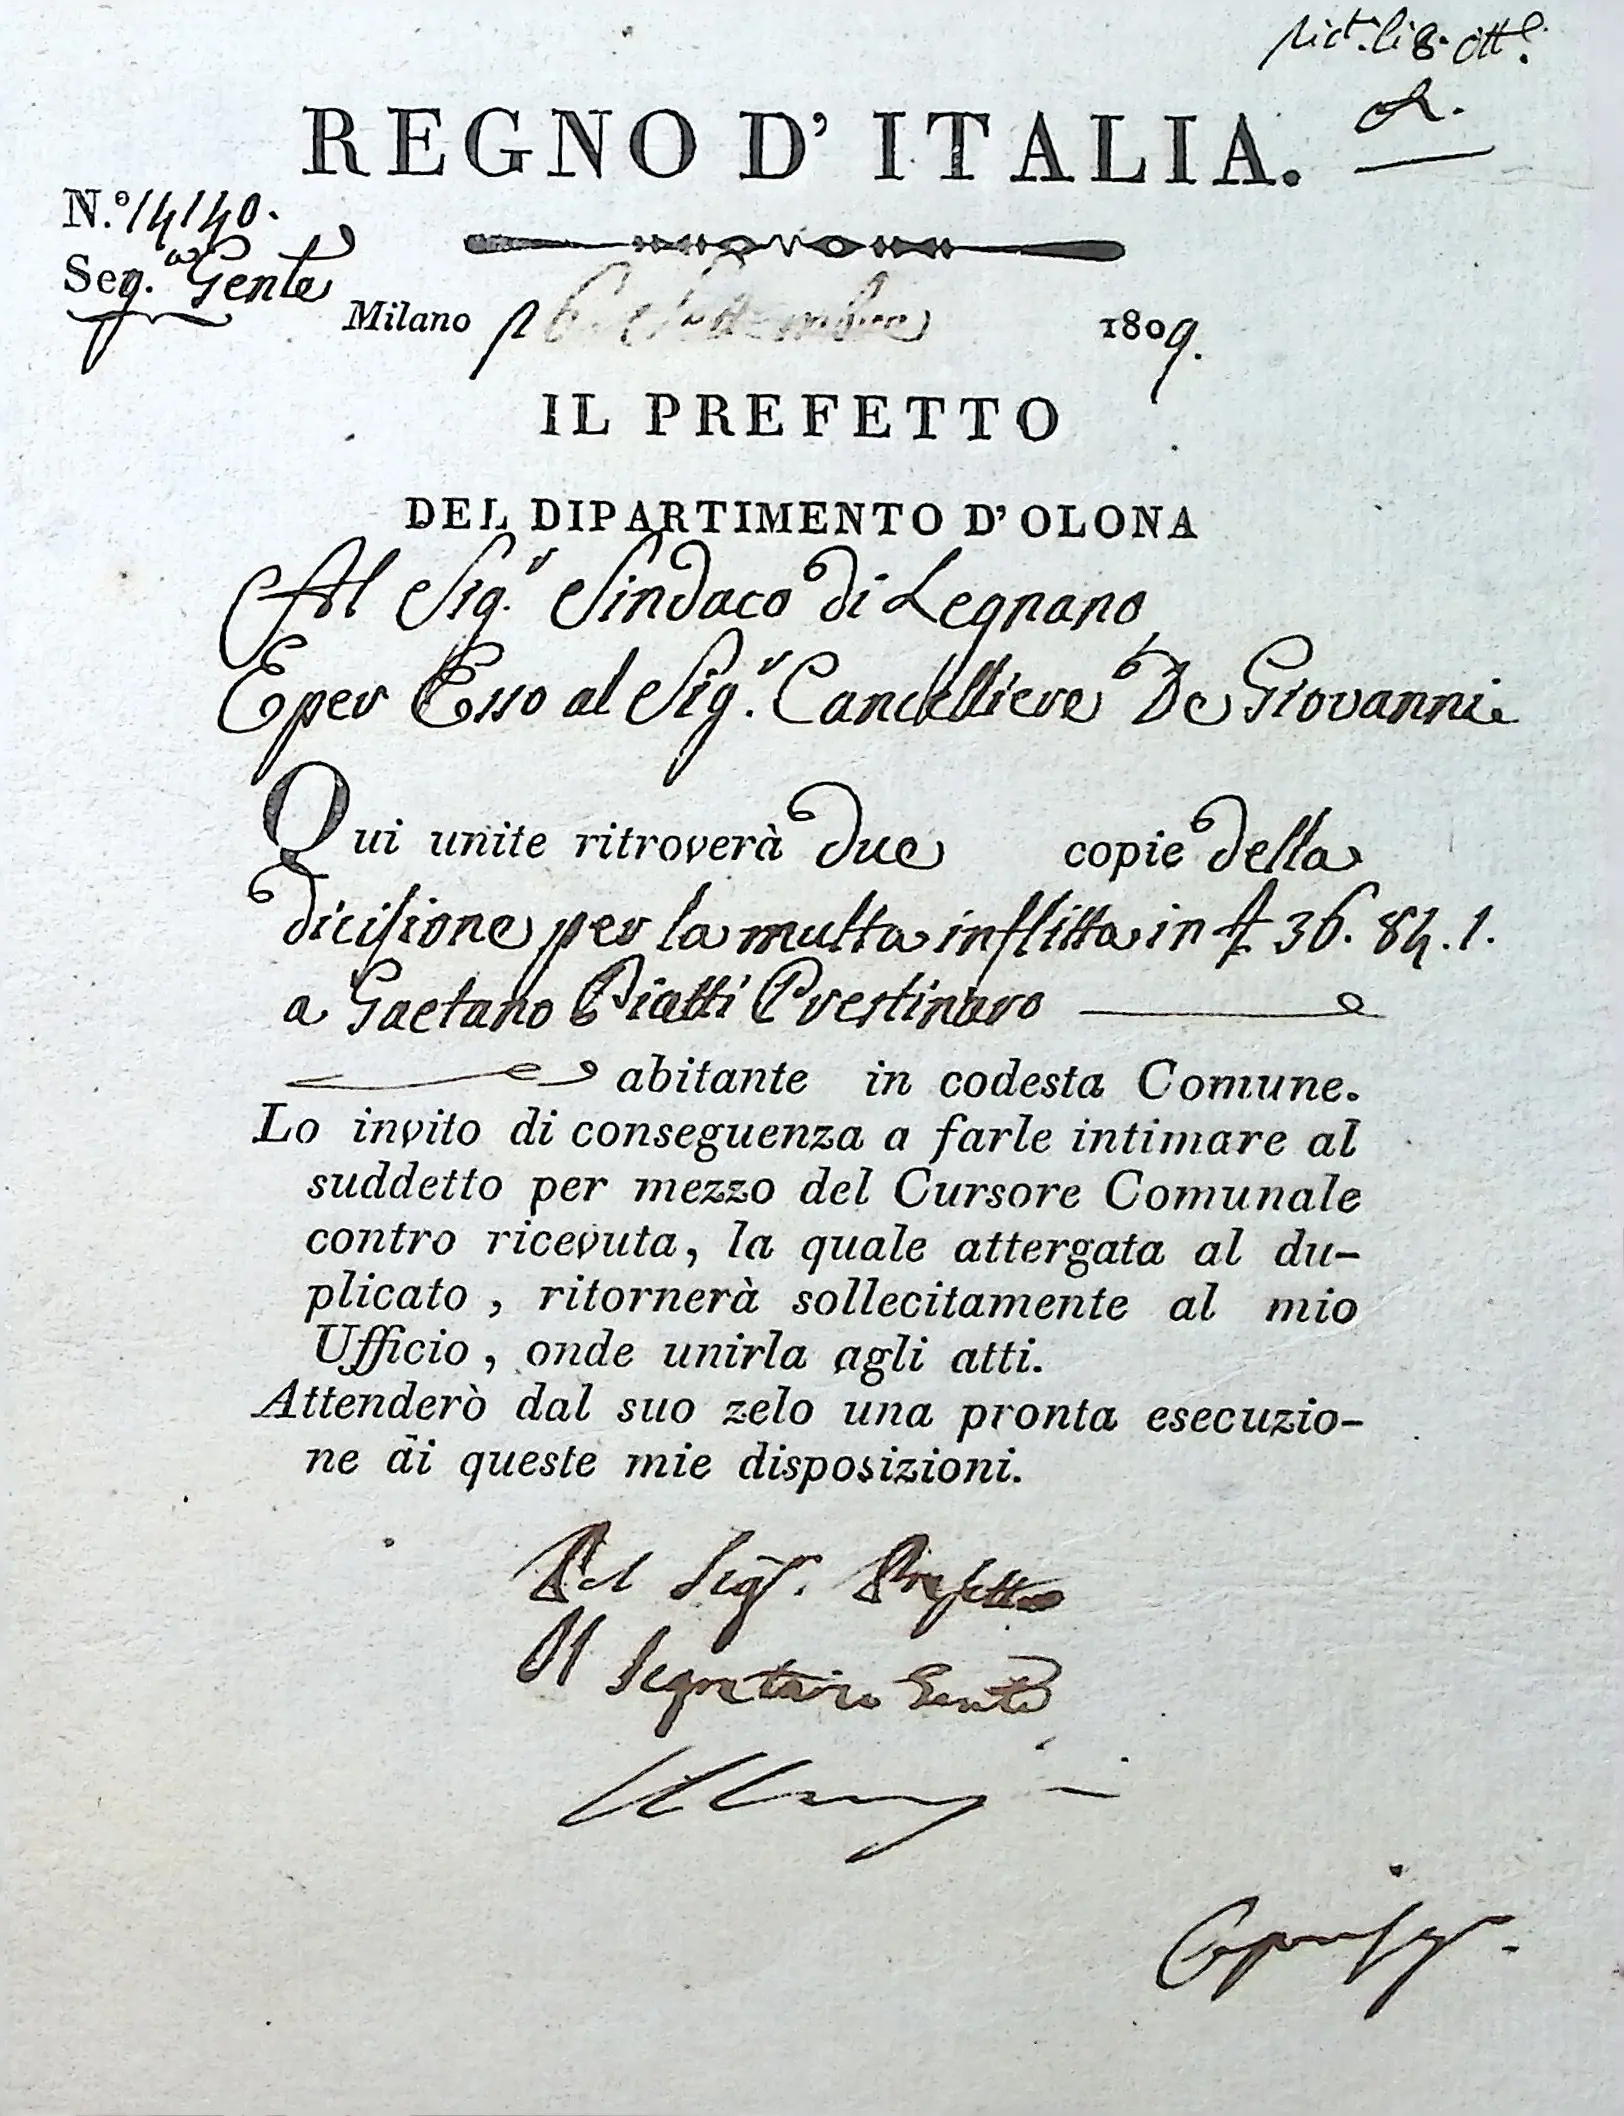 Ric.t li 8. ott.e
REGNO D' ITALIA.
N.º 14140.
Seg.a Gen.le
Milano 1809.
IL PREFETTO
DEL DIPARTIMENTO D' OLONA
Al Sig.r Sindaco di Legnano
E per Esso al Sig.r Cancelliere De Giovanni
Qui unite ritroverà due copie della
dicisione per la multa inflitta in £ 36. 84. 1.
a Gaetano Piatti Prestinaro
abitante in codesta Comune.
Lo invito di conseguenza a farle intimare al
suddetto per mezzo del Cursore Comunale
contro ricevuta, la quale attergata al du-
plicato, ritornerà sollecitamente al mio
Ufficio, onde unirla agli atti.
Attenderò dal suo zelo una pronta esecuzio-
ne di queste mie disposizioni.
Pel Sig.r Prefetto
Il Segretario Gen.le